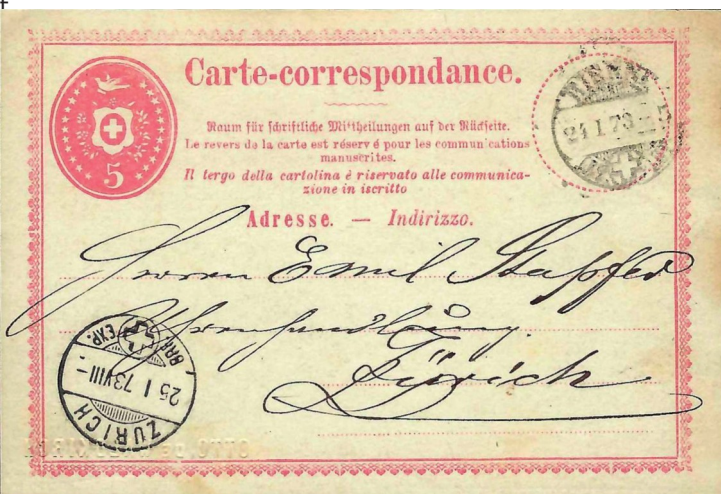 Carte-correspondance.
5
Raum für schriftliche Mittheilungen auf der Rückseite.
Le revers de la carte est réservé pour les communications
manuscrites.
Il tergo della cartolina è riservato alle communica-
zione in iscritto
Adresse. — Indirizzo.
BIENNE
24 I 73
Herrn Emil Stapfer
Uhrenhandlung
Zürich
ZÜRICH
25 I 73 VIII -
BRF. EXP.